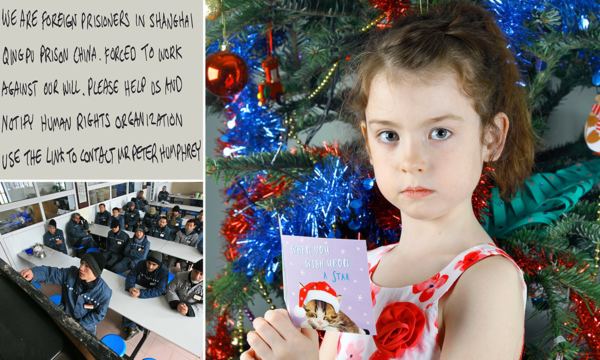 WE ARE FOREIGN PRISONERS IN SHANGHAI
QINGPU PRISON CHINA. FORCED TO WORK
AGAINST OUR WILL. PLEASE HELP US AND
NOTIFY HUMAN RIGHTS ORGANIZATION
USE THE LINK TO CONTACT MR PETER HUMPHREY
WHEN YOU
WISH UPON
A STAR